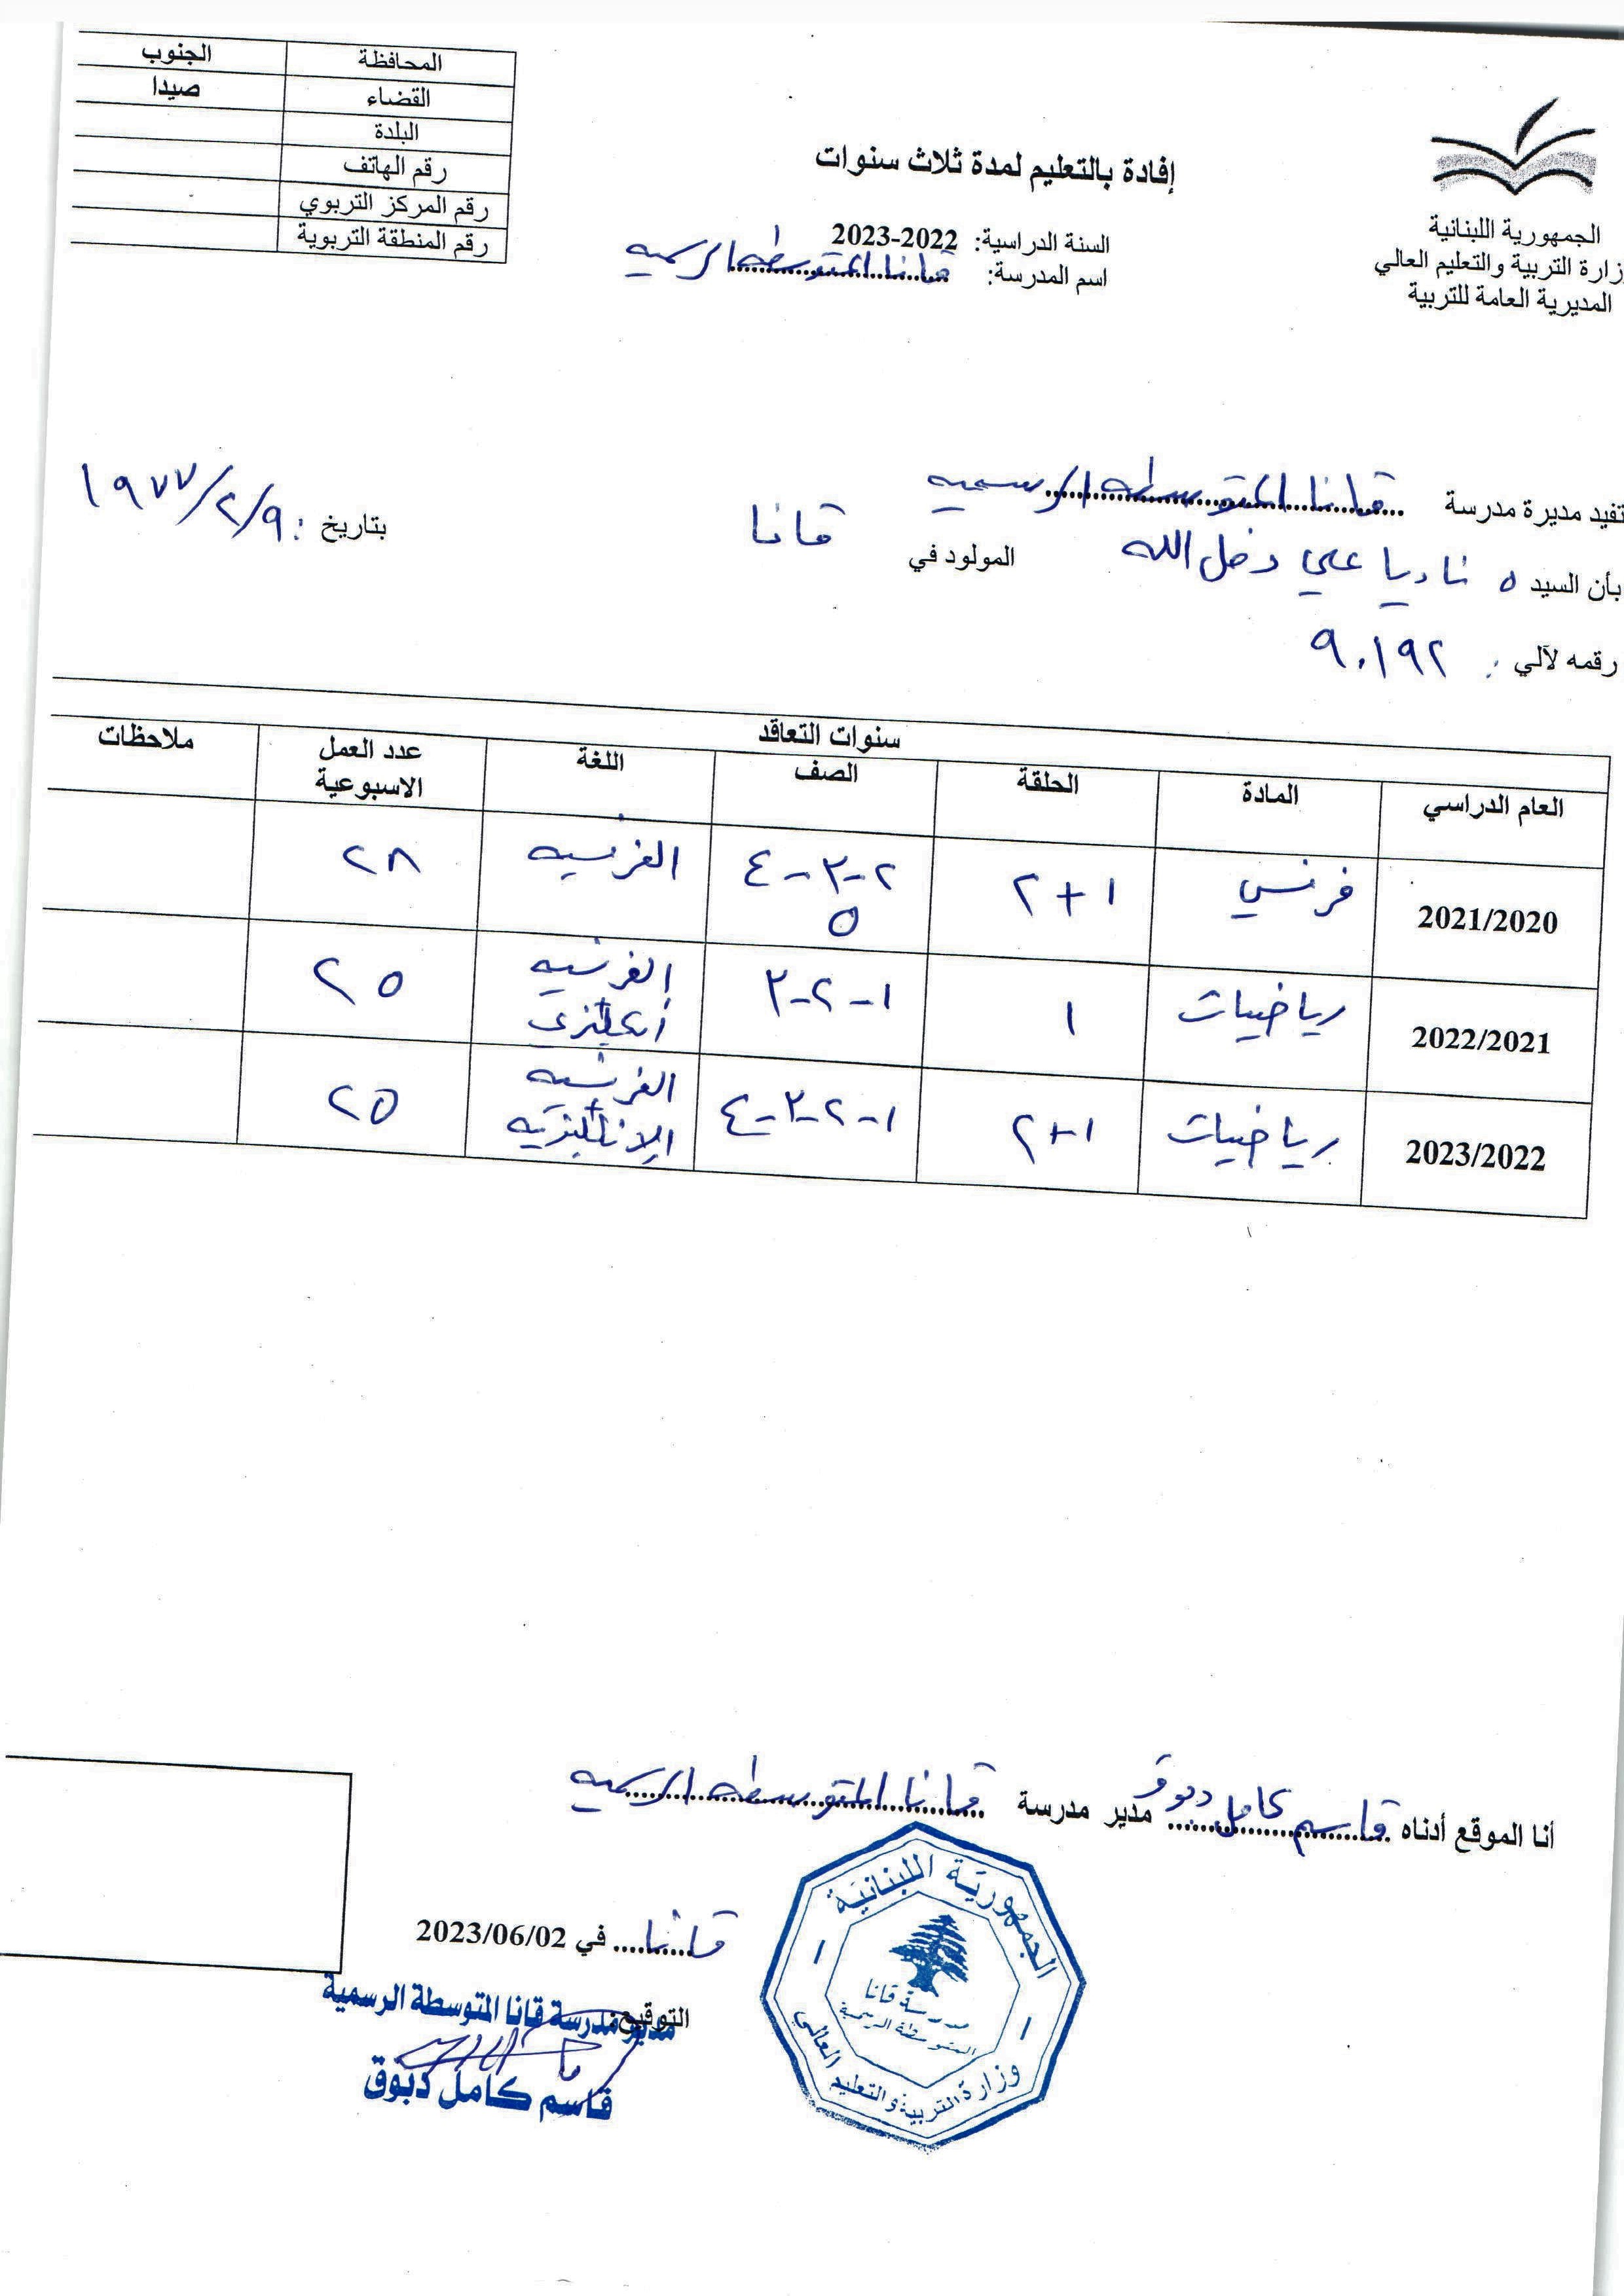 الجمهورية اللبنانية
وزارة التربية والتعليم العالي
المديرية العامة للتربية
إفادة بالتعليم لمدة ثلاث سنوات
السنة الدراسية: 2022-2023
اسم المدرسة: قانا المتوسطة الرسمية
المحافظة الجنوب
القضاء صيدا
البلدة
رقم الهاتف
رقم المركز التربوي
رقم المنطقة التربوية
تفيد مديرة مدرسة قانا المتوسطة الرسمية
بأن السيد ة ناديا علي دخل الله المولود في قانا بتاريخ : ٩/٢/١٩٧٧
رقمه لآلي : ٩٠١٩٢
سنوات التعاقد
العام الدراسي المادة الحلقة الصف اللغة عدد العمل الاسبوعية ملاحظات
2021/2020 فرنسي ١+٢ ٢-٣-٤ ٥ الفرنسيه ٢٨
2022/2021 رياضيات ١ ١-٢-٣ الفرنسيه + انكليزي ٢٥
2023/2022 رياضيات ١+٢ ١-٢-٣-٤ الفرنسيه + الانكليزيه ٢٥
أنا الموقع أدناه قاسم كامل دبوق مدير مدرسة قانا المتوسطة الرسمية
قانا في 2023/06/02
التوقيع:
مدير مدرسة قانا المتوسطة الرسمية
قاسم كامل دبوق
الجمهورية اللبنانية
مدرسة قانا
المتوسطة الرسمية
وزارة التربية والتعليم العالي